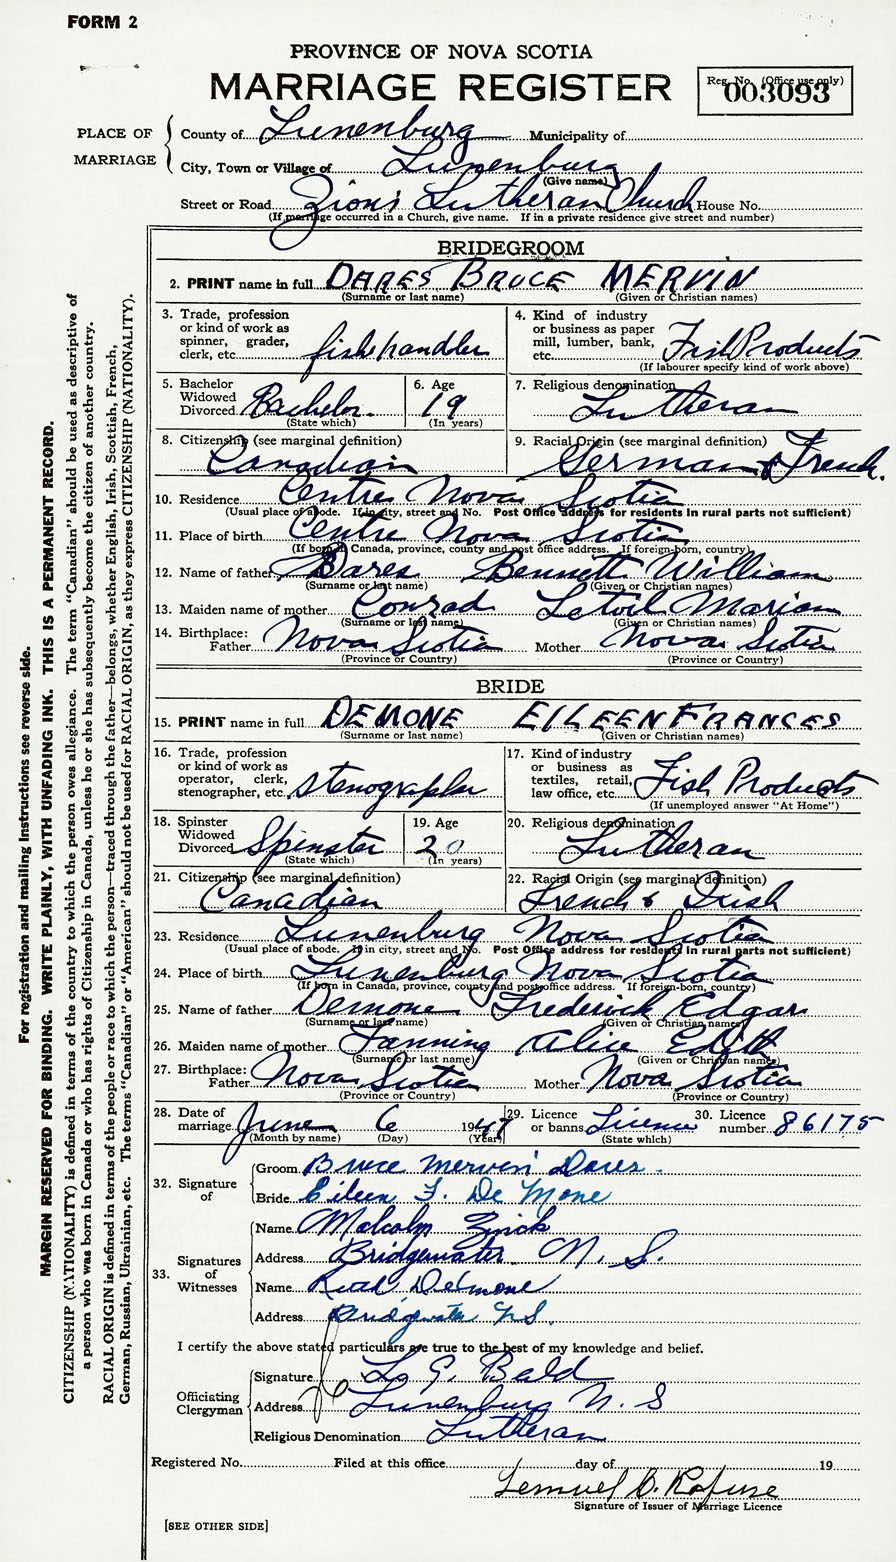 FORM 2
PROVINCE OF NOVA SCOTIA
MARRIAGE REGISTER
Reg. No. (Office use only)
003093
PLACE OF MARRIAGE
County of Lunenburg Municipality of
City, Town or Village of Lunenburg
(Give name)
Street or Road Zion's Lutheran Church House No.
(If marriage occurred in a Church, give name. If in a private residence give street and number)
BRIDEGROOM
2. PRINT name in full DARES BRUCE MERVIN
(Surname or last name) (Given or Christian names)
3. Trade, profession or kind of work as spinner, grader, clerk, etc. fish handler
4. Kind of industry or business as paper mill, lumber, bank, etc. Fish Products
(If labourer specify kind of work above)
5. Bachelor Widowed Divorced Bachelor
(State which)
6. Age 19
(In years)
7. Religious denomination Lutheran
8. Citizenship (see marginal definition) Canadian
9. Racial Origin (see marginal definition) German & French.
10. Residence Centre Nova Scotia
(Usual place of abode. If in city, street and No. Post Office address for residents in rural parts not sufficient)
11. Place of birth Centre Nova Scotia
(If born in Canada, province, county and post office address. If foreign-born, country)
12. Name of father Dares Bennett William
(Surname or last name) (Given or Christian names)
13. Maiden name of mother Conrad Marion
(Surname or last name) (Given or Christian names)
14. Birthplace: Father Nova Scotia Mother Nova Scotia
(Province or Country) (Province or Country)
BRIDE
15. PRINT name in full DEMONE EILEEN FRANCES
(Surname or last name) (Given or Christian names)
16. Trade, profession or kind of work as operator, clerk, stenographer, etc. stenographer
17. Kind of industry or business as textiles, retail, law office, etc. Fish Products
(If unemployed answer "At Home")
18. Spinster Widowed Divorced Spinster
(State which)
19. Age 20
(In years)
20. Religious denomination Lutheran
21. Citizenship (see marginal definition) Canadian
22. Racial Origin (see marginal definition) French & Irish
23. Residence Lunenburg Nova Scotia
(Usual place of abode. If in city, street and No. Post Office address for residents in rural parts not sufficient)
24. Place of birth Lunenburg Nova Scotia
(If born in Canada, province, county and post office address. If foreign-born, country)
25. Name of father Demone Frederick Edgar
(Surname or last name) (Given or Christian names)
26. Maiden name of mother Tanning Alice Edith
(Surname or last name) (Given or Christian names)
27. Birthplace: Father Nova Scotia Mother Nova Scotia
(Province or Country) (Province or Country)
28. Date of marriage June 6 1947
(Month by name) (Day) (Year)
29. Licence or banns Licence
(State which)
30. Licence number 86175
32. Signature of
Groom Bruce Mervin Dares.
Bride Eileen F. De Mone
33. Signatures of Witnesses
Name Malcolm Zinck
Address Bridgewater N. S.
Name Ruth Demone
Address Bridgewater N.S.
I certify the above stated particulars are true to the best of my knowledge and belief.
Officiating Clergyman
Signature L. G. Bald
Address Lunenburg N. S
Religious Denomination Lutheran
Registered No. Filed at this office day of 19
Lemuel C. Rafuse
Signature of Issuer of Marriage Licence
[SEE OTHER SIDE]
For registration and mailing instructions see reverse side.
MARGIN RESERVED FOR BINDING. WRITE PLAINLY, WITH UNFADING INK. THIS IS A PERMANENT RECORD.
CITIZENSHIP (NATIONALITY) is defined in terms of the country to which the person owes allegiance. The term "Canadian" should be used as descriptive of
a person who was born in Canada or who has rights of Citizenship in Canada, unless he or she has subsequently become the citizen of another country.
RACIAL ORIGIN is defined in terms of the people or race to which the person—traced through the father—belongs, whether English, Irish, Scottish, French,
German, Russian, Ukrainian, etc. The terms "Canadian" or "American" should not be used for RACIAL ORIGIN, as they express CITIZENSHIP (NATIONALITY).